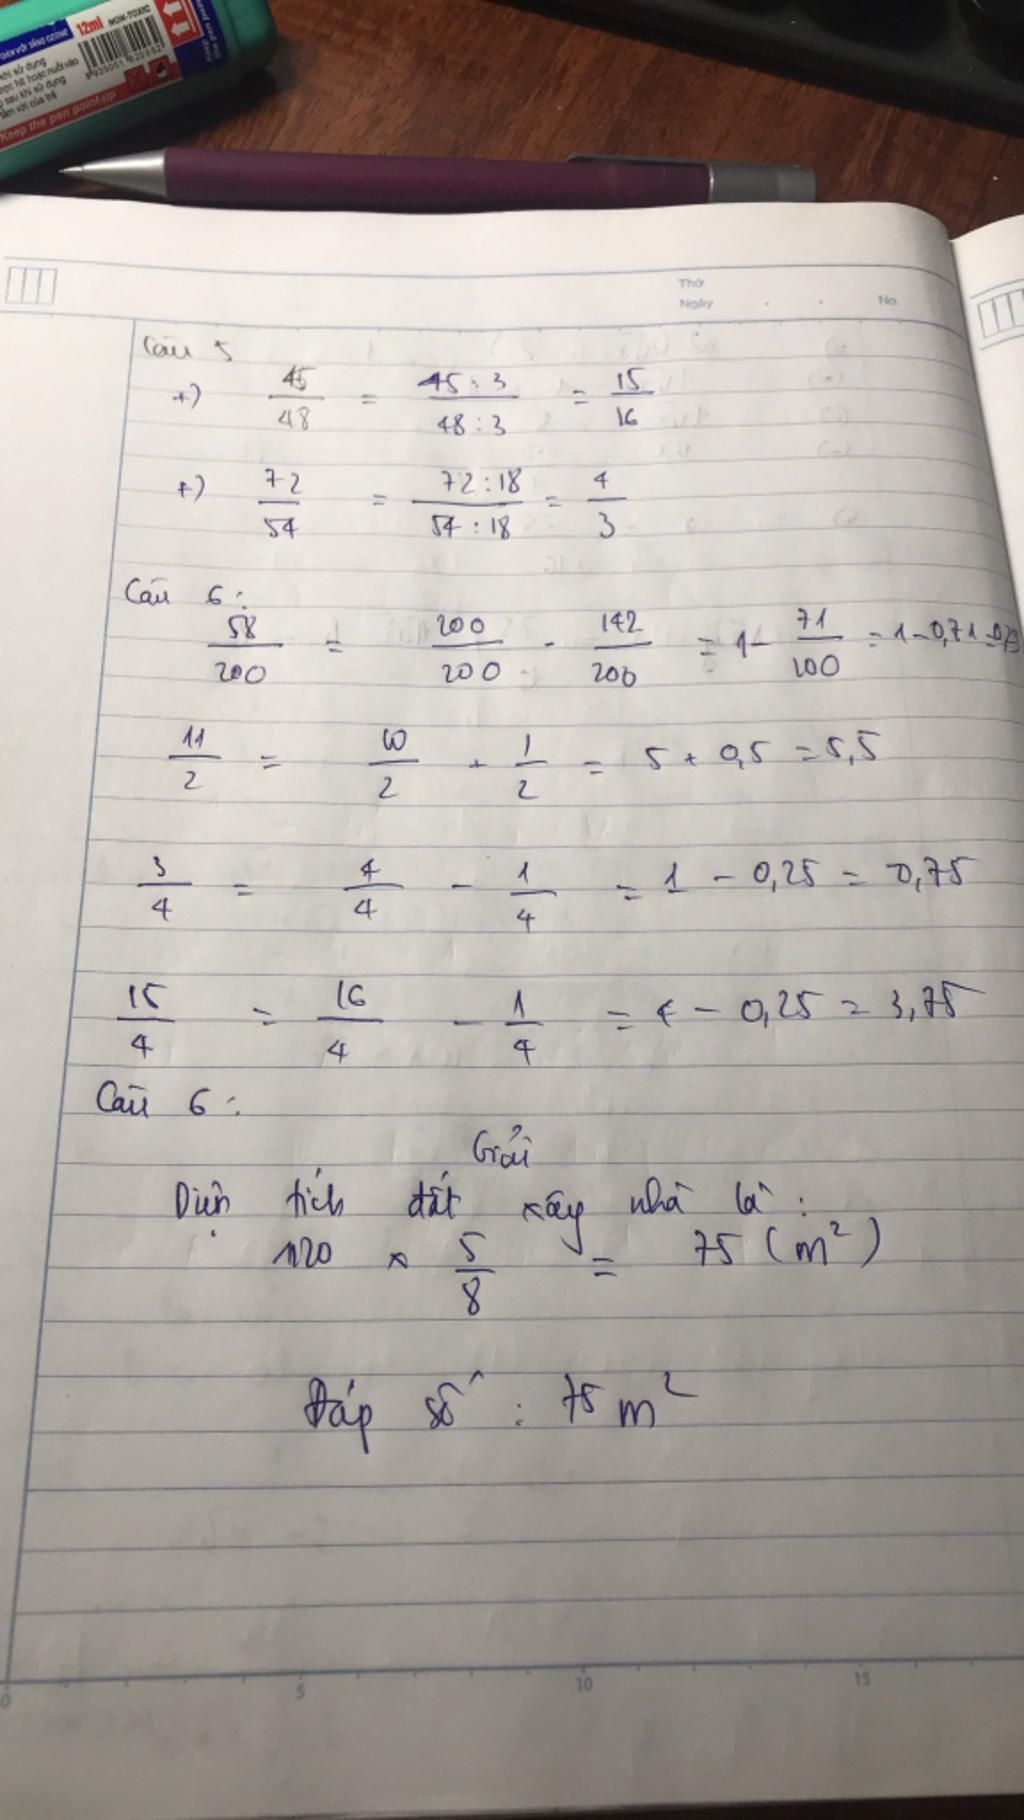 12ml NON-TOXIC
khi sử dụng
sau khi sử dụng
tầm với của trẻ
Keep the pen point-up
Thứ
Ngày . . No.
Câu 5
+) 45/48 = 45 : 3/48 : 3 = 15/16
+) 72/54 = 72 : 18/54 : 18 = 4/3
Câu 6 :
58/200 = 200/200 - 142/200 = 1 - 71/100 = 1 - 0,71 = 0,29
11/2 = 10/2 + 1/2 = 5 + 0,5 = 5,5
3/4 = 4/4 - 1/4 = 1 - 0,25 = 0,75
15/4 = 16/4 - 1/4 = 4 - 0,25 = 3,75
Câu 6 :
Giải
Diện tích đất xây nhà là :
120 x 5/8 = 75 (m²)
Đáp số : 75 m²
0 5 10 15